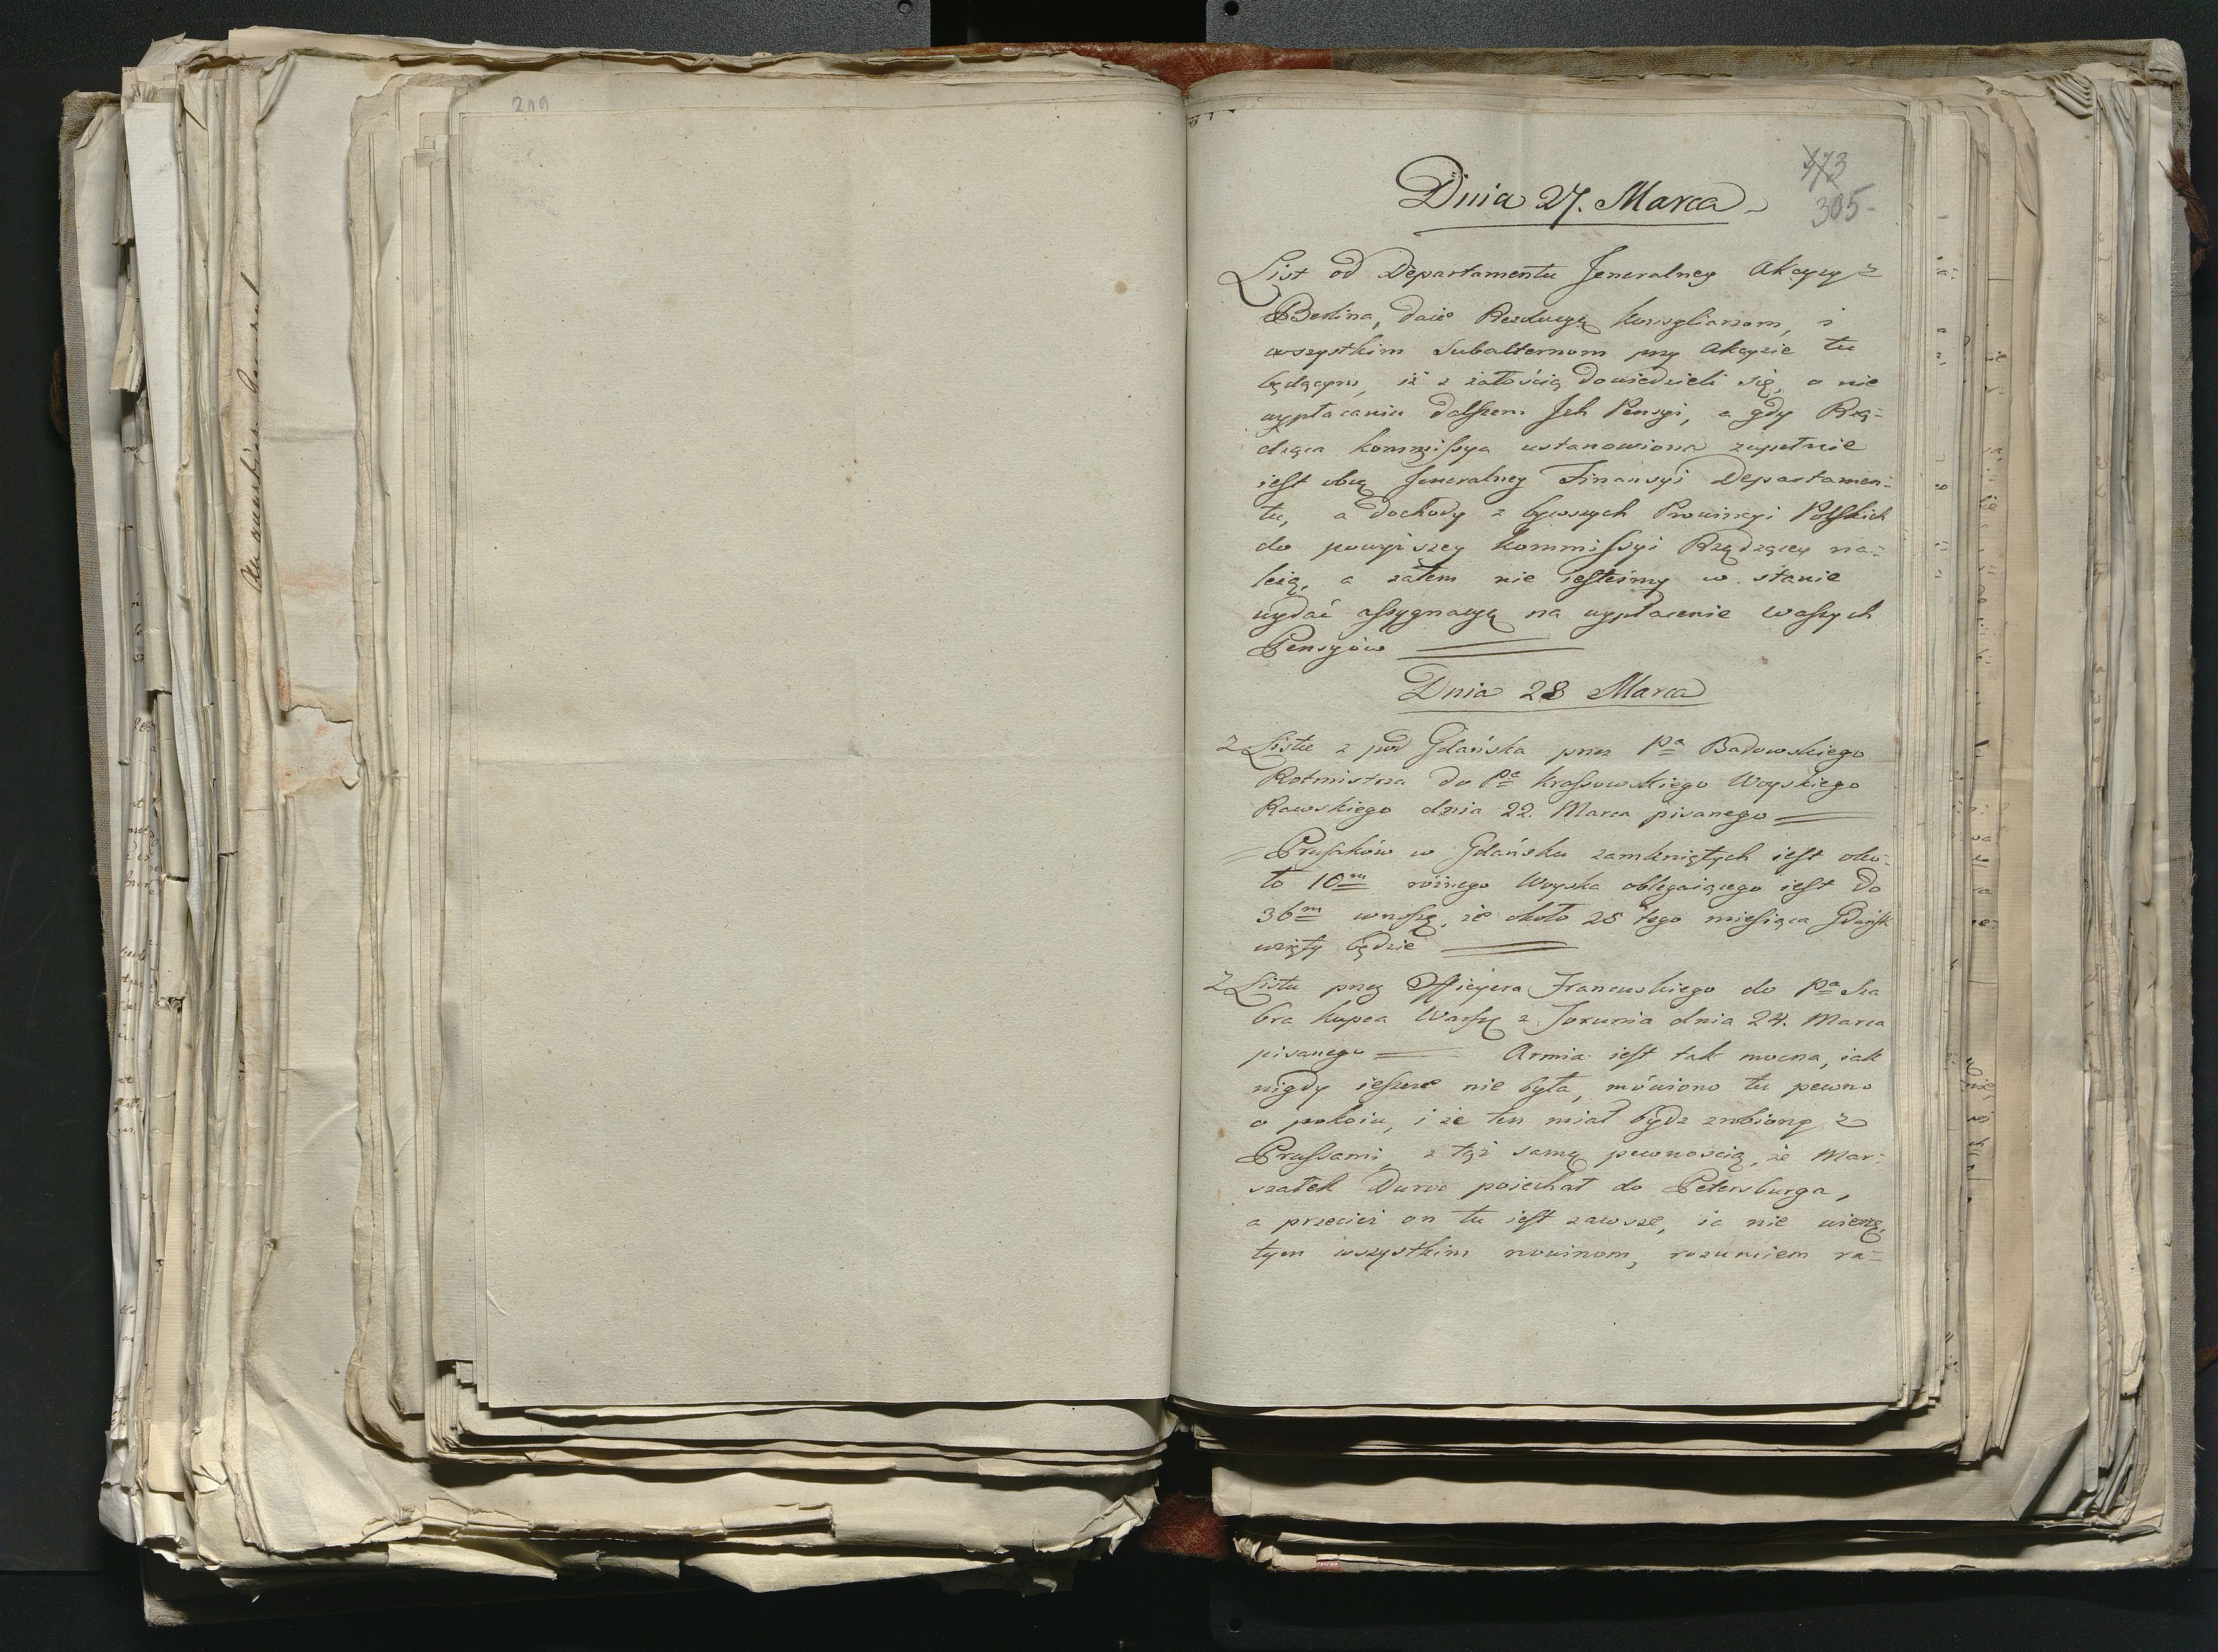 Dnia 27. Marca
373
305-
List od Departamentu Jeneralney Akcyzy z
Berlina, daie Rezolucyą konsyliarzom, i
wszystkim Subalternom przy Akcyzie tu
będącym, iż z żałością dowiedzieli się, o nie
wypłacaniu dalszem Jch Pensyi, a gdy Rzą=
dząca kommissya ustanowiona zupełnie
iest obcą Jeneralney Finansyi Departamen=
tu, a dochody z bywszych Prowincyi Polskich
do powyższey kommissyi Rządzącey na=
leżą, a zatem nie iesteśmy w stanie
wydać assygnacyą na wypłacenie waszych
Pensyów
Dnia 28 Marca
Z Listu z pod Gdańska przez Pa Badowskiego
Rotmistrza do Pa Krassowskiego Woyskiego
Rawskiego dnia 22. Marca pisanego
= Prusaków w Gdańsku zamkniętych iest oko=
ło 10m różnego Woyska oblegaiącego iest do
36m wnoszą, że około 28 tego miesiąca Gdańsk
wzięty będzie
Z Listu przez Officyera Francuskiego do Pa Sza
bra kupca Warsz z Torunia dnia 24. Marca
pisanego Armia iest tak mocna, iak
nigdy ieszcze nie była, mówiono tu pewno
o pokoiu, i że ten miał bydz zrobiony z
Prussami, z tąż samą pewnością, że Mar=
szałek Duroc poiechał do Petersburga,
a przecież on tu iest zawsze, ia nie wierzę
tym wszystkim nowinom, rozumiem ra=